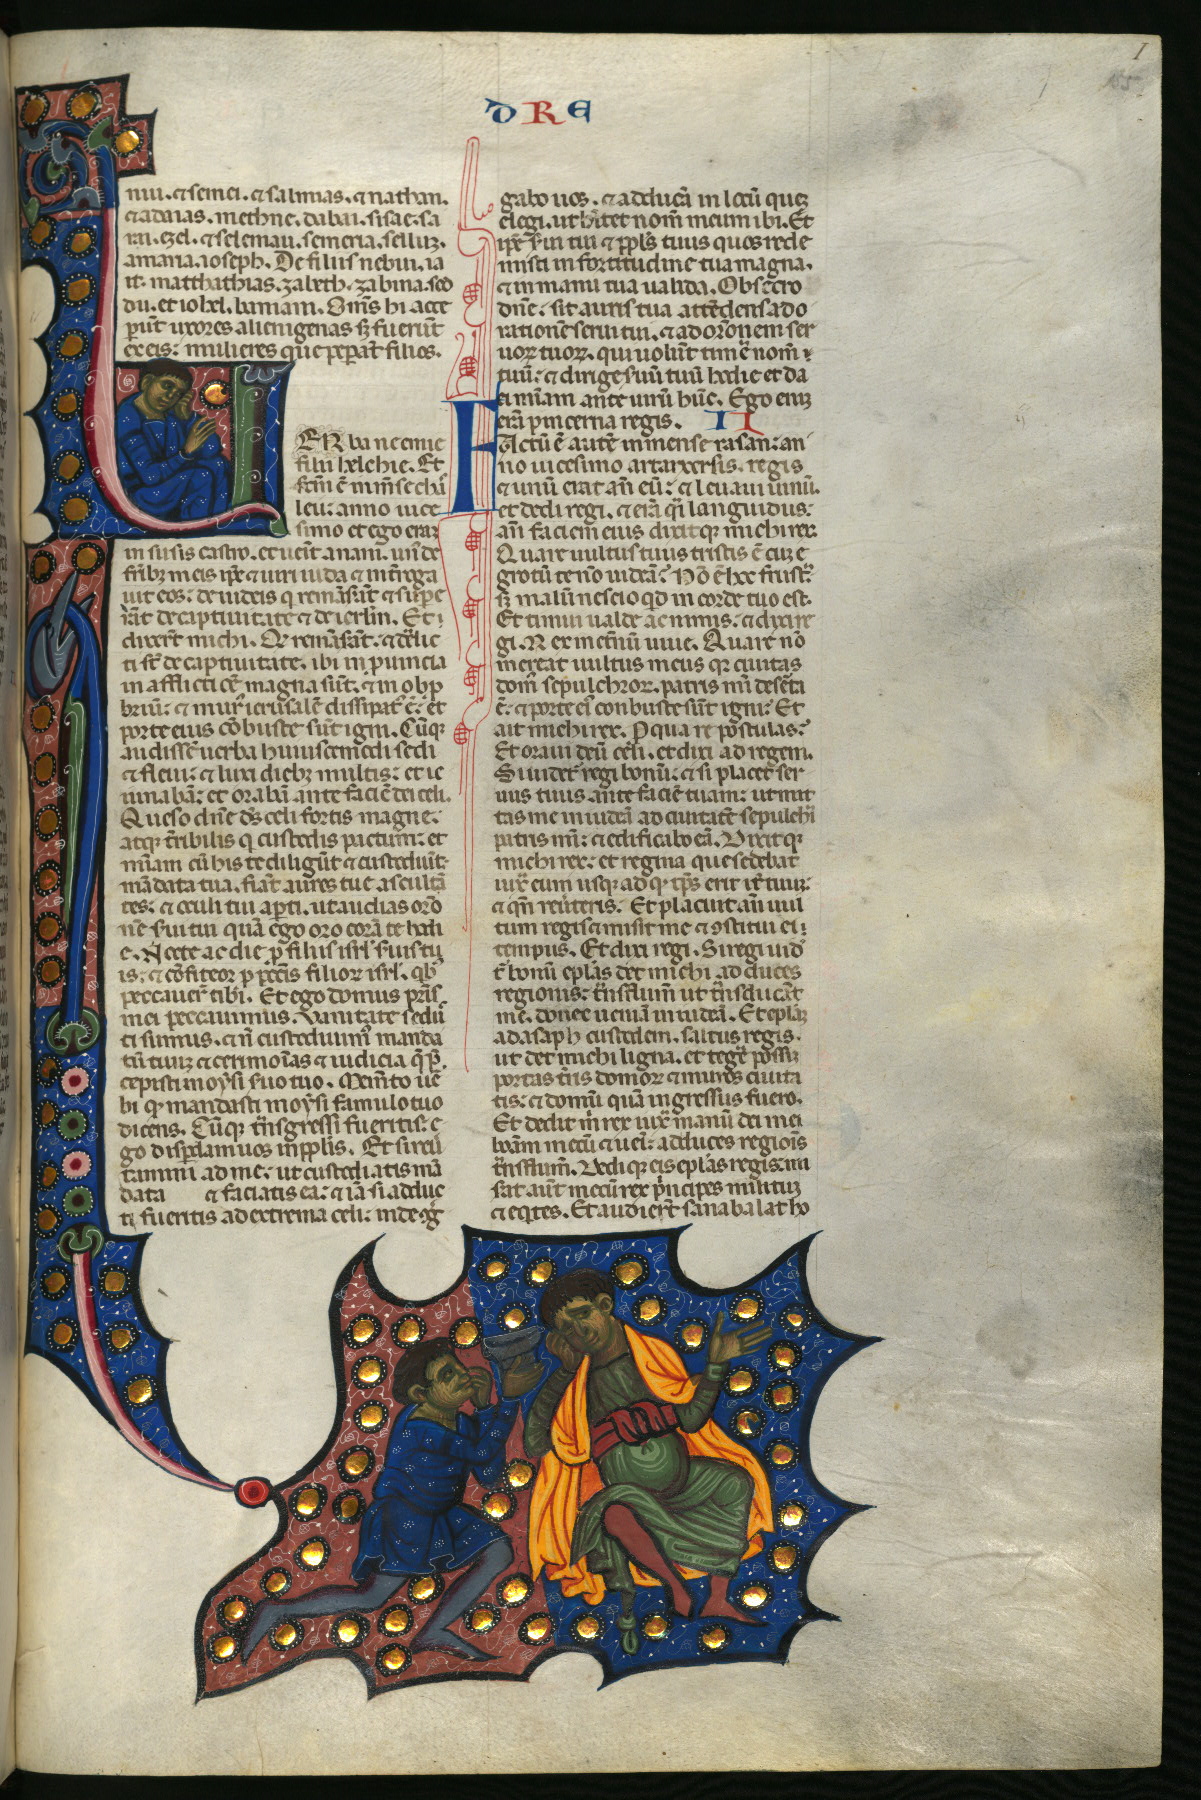 DRE
I
nui. et semei. et salmias. et nathan.
et adaias. methne. dabai. sisac. sa
rai. ezel. et selemau. semeria. sellum.
amaria. ioseph. De filiis nebui. ia
it. matthathias. zabeth. zabina. ied
du. et iohel. banaiam. Om̄s hi acce
perūt uxores alienigenas et fuerūt
ex eis: mulieres que pepererāt filios.
ERba neemie
filii helchie. Et
fctm̄ ē in mēse chas
leu: anno uice
simo et ego erā
in susis castro. et uenit anani. un̄ de
frībus meis ip̄e et uiri iuda et interroga
ui eos: de iudeis q̄ remāserāt et supere
rāt de captiuitate et de ierl̄m. Et
dixerūt michi. Qui remāserūt. et relic
ti sūt de captiuitate. ibi in prouincia
in afflictiōe magna sūt. et in obp
briū: et mur̄ ierusalē dissipat̄ ē: et
porte eius cōbuste sūt igni. Cūq̄
audissē uerba huiuscemodi sedi
et fleui: et luxi diebus multis: et ie
iunabā: et orabā ante faciē dei celi.
Queso dn̄e ds̄ celi fortis magne:
atq̄ terribilis q̄ custodis pactum: et
mīam cū his te diligūt et custodiūt
mādata tua. fiāt aures tue asculta
tes: et oculi tui aperti. ut audias orō
nē serui tui quā ego oro corā te hodi
e. Nocte ac die p̄ filiis isrl̄ seruis tu
is: et cōfiteor p̄ peccatis filior̄ isrl̄. qb̄
peccauer̄ tibi. Et ego et domus patris
mei peccauimus. Uanitate seduc
ti sumus. et n̄ custodiuim̄ manda
tū tuum et cerimoīas et iudicia q̄ p̄
cepisti moysi seruo tuo. Memto uer
bi q̄ mandasti moysi famulo tuo
dicens. Cūq̄ trāsgressi fueritis: e
go disperdam uos in pplis. Et si reu
tamini ad me: ut custodiatis mā
data et faciatis ea: et iā si adduc
ti fueritis ad extrema celi: inde cōgre
gabo uos. et adducā in locū quem
elegi. ut hitet nom̄ meum ibi. Et
ip̄i serui tui et ppl̄s tuus quos rede
misti in fortitudine tua magna.
et in manu tua ualida. Obsecro
dn̄e: sit auris tua attēdens ad o
rationē serui tui. et ad orōnem ser
uorum tuorum. qui uolūt timere nom̄
tuū: et dirige seruū tuū hodie et da
ei mīam ante uirū hūc. Ego enim
erā pincerna regis. II
FActū ē autē in mense nasan: an
no uicesimo artaxersis. regis
et uinū erat an̄ eū: et leuaui uinū.
et dedi regi. et erā q̄si languidus:
an̄ faciem eius dixitq̄ michi rex
Quare uultus tuus tristis ē cum e
grotū te nō uideā: Nō ē hoc frustra:
s̄ malū nescio qd̄ in corde tuo est.
Et timui ualde ac nimis: et dixi re
gi. Rex in eternū uiue. Quare nō
mereat uultus meus q̄ ciuitas
dom̄ sepulchror̄. patris mī deserta
ē: et porte ei̅ conbuste sūt igni: Et
ait michi rex. Pro qua re postulas:
Et oraui deū celi. et dixi ad regem.
Si uidet̄ regi bonū: et si placet ser
uus tuus ante faciē tuam: ut mit
tas me in iudeā ad ciuitatē sepulchri
patris mī: et edificabo eā. Dixitq̄
michi rex: et regina que sedebat
iuxta eum usq̄ ad q̄ tp̄s erit iter tuum:
et qn̄ reuerteris. Et placuit an̄ uul
tum regis et misit me et 9stitui ei
tempus. Et dixi regi. Si regi uide
t̄ bonū epl̄as det michi ad duces
regionis: trās flum̄ ut trāsducāt
me. donec ueniā in iudeā. Et epl̄am
ad asaph custodem. saltus regis.
ut det michi ligna. et tege possim
portas turris domor̄ et muros ciuita
tis: et domū quā ingressus fuero.
Et dedit m̄ rex iuxta manū dei mei
bonam mecū et ueni: ad duces regiois
trāsflum̄. Dediq̄ eis epl̄as regis: mi
serat aūt mecū rex p̄ncipes militum
et eq̄tes. Et audierūt sanabalat ho